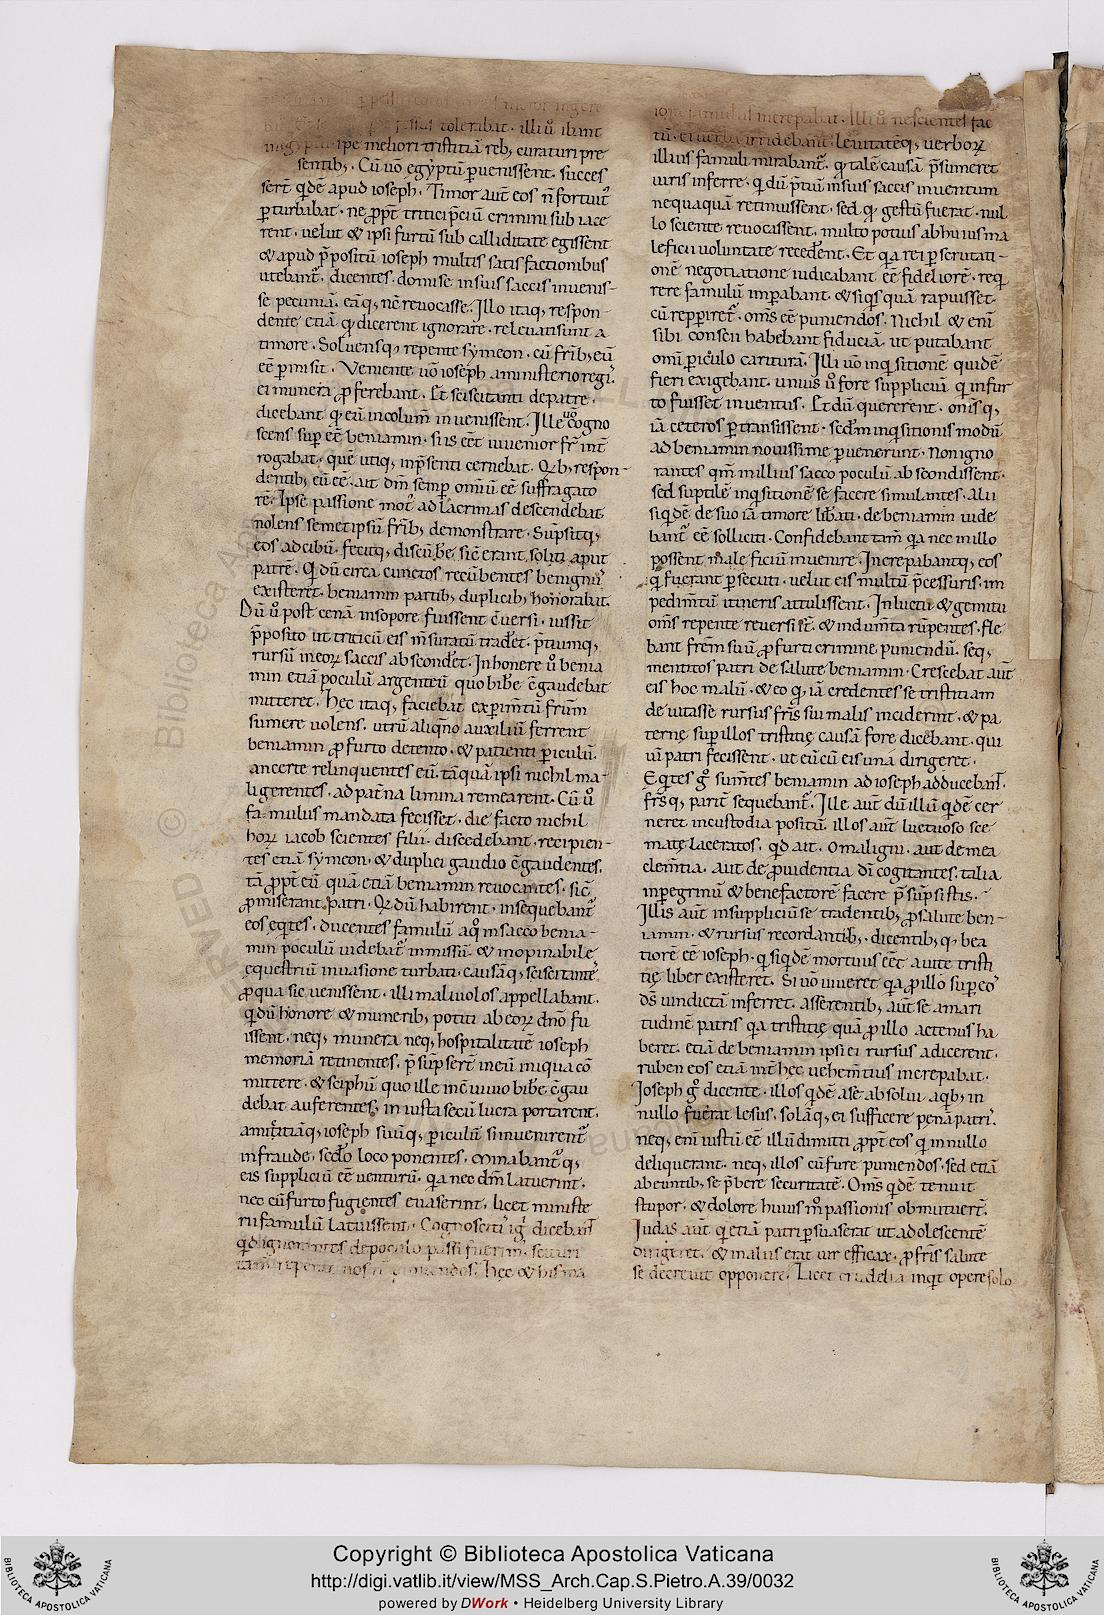 tolerabat· illi ů ibant
spe meliori tristitiā reb; curaturi pre
sentib;· Cū uō egẏptū ꝑuenissent· succes
sert̄ qͥdē apud ioseph· Timor aut̄ eos n̄ fortuit᷒
ꝑturbabat· ne ꝓpt̄ tritici p̄ciū crimini sub iace
rent· uelut & ipsi furtū sub calliditate egissent
& apud p̄positū ioseph multis satis factionibus
utebant᷒· dicentes· domi se in suis saccis inuenis-
se pecuniā· eāq; nē reuocasse· Illo itaq; respon-
dente etiā qđ dicerent ignorare· releuati sunt a
timore· Soluensq; repente sẏmeon· cū frīb; eū
eē ꝑmisit· Veniente uō ioseph aministerio regi᷒·
ei munera ꝓferebant· Et sciscitanti de patre·
dicebant qđ eū incolumē inuenissent· Ille ůo cogno
scens suꝑ eē beniamin· si is eēt iuuenior fr̄ int̄
rogabat· quē utiq; inp̄senti cernebat· Qͥb; respon-
dentib; eū eē· aut dm̄ semꝑ omīū eē suffragato
rē· Ipse passione mot᷒ ad lacrimas descendebat
nolens semet ipsū frīb; demonstrare· Sūpsitq;
eos ad cibū· fecitq; discūbe͛ sic̄ erant soliti aput
patrē· Qͥ dū circa cunctos recūbentes benign᷒
existeret· beniamin partib; duplicib; honorabat·
Dū ů post cenā insopore fuissent c̄uersi· iussit
p̄posito ut triticū eis m̄suratū trade͛t· p̄tiumq;
rursū in eoꝝ saccis absconde͛t· In honere ů benia
min etiā poculū argenteū quo bibe͛ c̄gaudebat
mitteret· Hęc itaq; faciebat experim̄tū fr̄um
sumere uolens· utrū aliqͥno auxiliū ferrent
beniamin ꝓ furto detento· & patienti ꝑiculū·
an certe relinquentes eū· tāquā ipsi nichil ma-
li gerentes· ad patn̄a limina remearent· Cū ů
famulus mandata fecisset· die facto nichil
hoꝝ iacob scientes filii· discedebant· recipien-
tes etiā sẏmeon· & duplici gaudio c̄gaudentes·
tā ꝓpt̄ eū quā etiā beniamin reuocantes· sic̄
ꝓmiserant patri· Qͥ dū habirent· insequebant᷒
eos eqͥtes· ducentes famulū aqͦ in sacco benia-
min poculū uidebat᷒ inmissū· & inopinabile
equestriū inuasione turbati· causāq; sciscitante᷒
ꝓqua sic uenissent· illi maliuolos appellabant·
qͥ dū honore & munerib; potiti ab eoꝝ dn̄o fu
issent· neq; munera neq; hospitalitatē ioseph
memoriā retinentes· p̄sūpsert̄ in eū iniqua cō
mittere· & sciphū quo ille inc̄uiuio bibe͛ c̄gau
debat auferentes· iniusta secū lucra portarent·
amicitiāq; ioseph suūq; ꝑiculū si inuenirent᷒
in fraude· scđo loco ponentes· Minabant᷒q;
eis suppliciū eē uenturū· qͥa nec dm̄ latuerint·
nec cū furto fugientes euaserint· licet ministe
rii famulū latuissent· Cognosceti᷒ iḡ dicebant᷒
increpabat· Illi ů nescientes fac
tū· ei uerba irridebant· leuitateq; uerboꝝ
illius famuli mirabant᷒· qđ talē causā p̄sumeret
uiris inferre· qͥ dū p̄tiū in suis saccis inuentum
nequaquā retinuissent· sed qđ gestū fuerat· nul
lo sciente reuocassent· multo potius ab huius ma
leficii uoluntate recede͛nt· Et qͥa rei ꝑscrutati-
onē negotiatione iudicabant eē fideliorē· reqͥ
rere famulū imꝑabant· & siqͥs quā rapuisset
cū repperiret᷒· omīs eē puniendos· Nichil & eni
sibi conscii habebant fiduciā· ut putabant
omī ꝑiculo carituri· Illi uō inqͥsitionē quidē
fieri exigebant· unius ů fore suppliciū· qͥ in fur
to fuisset inuentus· Et dū quererent· om̄sq;
iā ceteros ꝑtransissent· scđm inqͥsitionis modū
ad beniamin nouissime ꝑuenerunt· Non igno
rantes qm̄ in illius sacco poculū abscondissent·
sed suptilē inqͥsitionē se facere simulantes· Alii
siqͥdē de suo iā timore libati· de beniamin uide
bant᷒ eē solliciti· Confidebant tam̄ qͥa nec in illo
possent male ficiū inuenire· Increpabantq; eos
qͥ fuerant ꝑsecuti· uelut eis multū p̄cessuris· im
pedim̄tū itineris attulissent· In luctu & gemitu
om̄s repente reuersi st̄· & indum̄ta rūpentes· fle
bant fr̄em suū ꝓ furti crimine puniendū· seq;
mentitos patri de salute beniamin· Crescebat aut̄
eis hoc malū· & eo qđ iā credentes se tristitiam
deuitasse rursus fr̄is sui malis inciderint· & pa
ternę suꝑ illos tristitię causā fore dicebant· qui
uī patri fecissent· ut eū cū eis unā dirigeret·
Eqͥtes g̊ sum̄tes beniamin ad ioseph adducebant᷒·
fr̄sq; parit̄ sequebant᷒· Ille aut̄ dū illū qͥdē cer
neret in custodia positū· illos aut̄ luctuoso sce
mate laceratos· qͥd ait· O maligni· aut de mea
clem̄tia· aut de ꝓuidentia dī cogitantes· talia
in peregrinū & benefactorē facere p̄sūpsistis·
Illis aut̄ in suppliciū se tradentib; ꝓ salute ben-
iamin· & rursus recordantib; dicentib;q; bea
tiorē eē ioseph· qͥ siqͥdē mortuus eēt a uite tristi
tię liber existeret· Si uō uiueret qͥa ꝓ illo suꝑ eo᷒
dś uindictā inferret· asserentib; aut̄ se amari
tudinē patris qͥa tristitię quā ꝓ illo actenus ha
beret· etiā de beniamin ipsi ei rursus adicerent·
ruben eos etiā int̄ hęc uehem̄tius increpabat·
Ioseph g̊ dicente· illos qͥdē a se absolui aqͥb; in
nullo fuerat lesus· solāq; ei sufficere penā patri᷒·
neq; enī iustū eē illū dimitti ꝓpt̄ eos qͥ in nullo
deliquerant· neq; illos cū fure puniendos· sed etiā
abeuntib; se p̄bere securitatē· Om̄s qͥdē tenuit
stupor· & dolore huius m̊ passionis obmutuert̄·
Iudas aut̄ qͥ etiā patri ꝑsuaserat ut adolescentē
dirigeret· & malius erat uir efficax· ꝓ fr̄is salute
se decreuit opponere· Licet crudelia inqͥt opere solo
Copyright © Biblioteca Apostolica Vaticana
http://digi.vatlib.it/view/MSS_Arch.Cap.S.Pietro.A.39/0032
powered by DWork • Heidelberg University Library
BIBLIOTECA APOSTOLICA VATICANA
BIBLIOTECA APOSTOLICA VATICANA